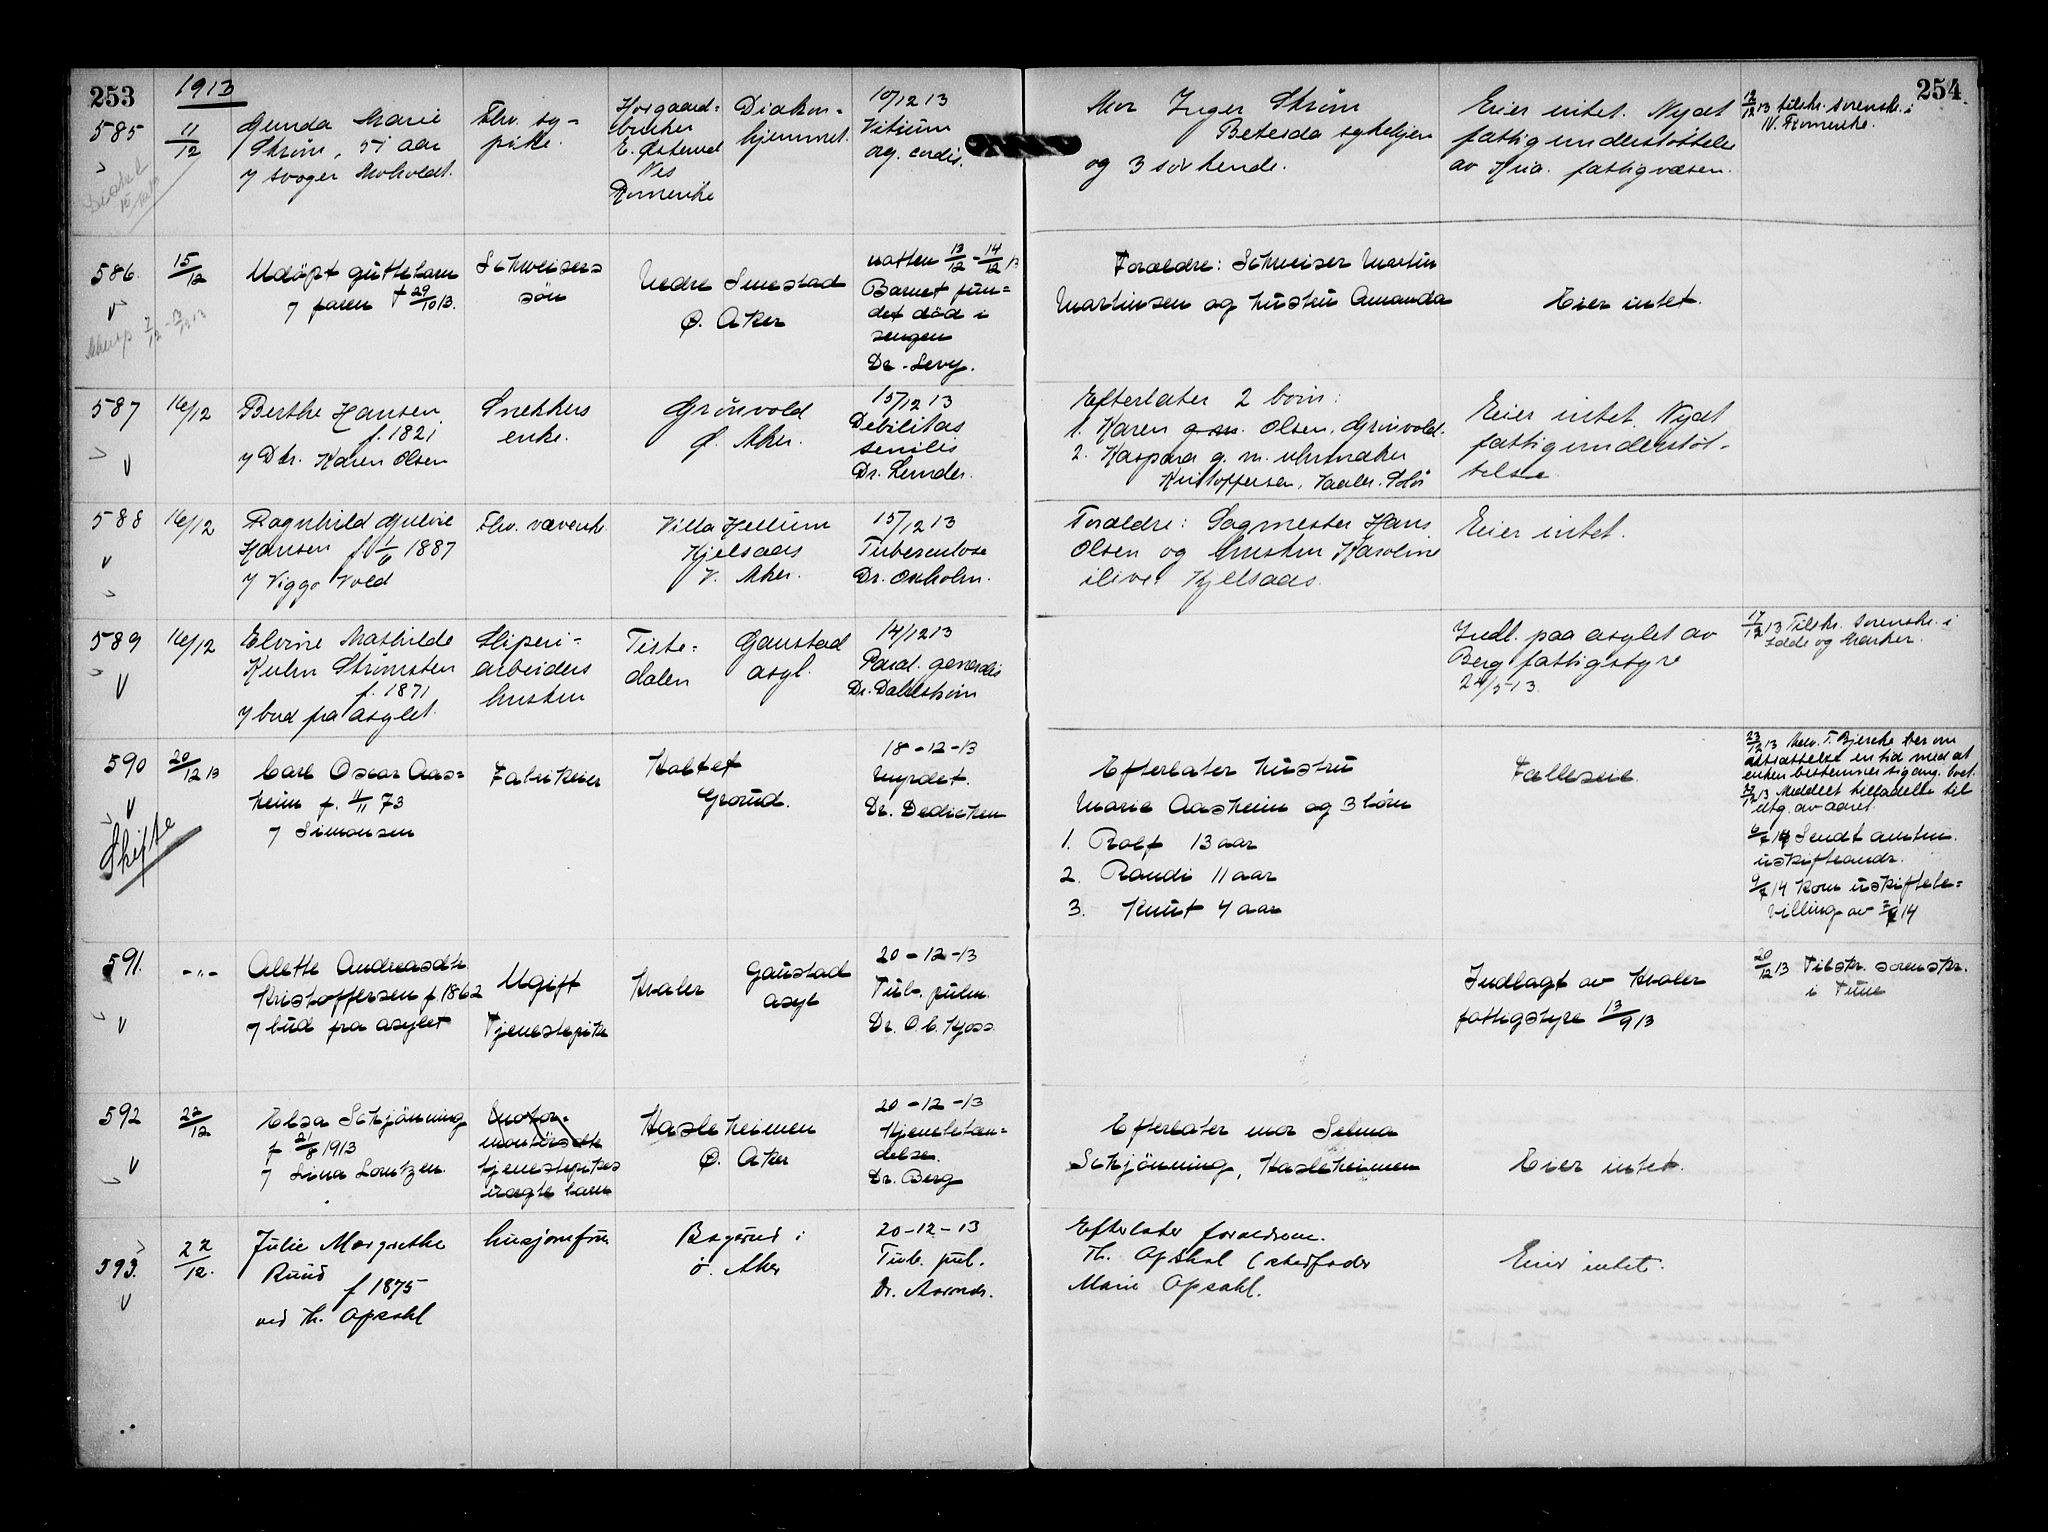 253
1913
254
585
11/12
Gunda Marie
Strøm, 51 aar
7 svoger Moholdt.
Fhv. sy-
pike.
E. Østerud
Nes
Romerike
Diakon-
hjemmet.
10/12 13
Vitium
org. cordis.
Mor Inger Strøm
Betesda sykehjem
og 3 søskende.
Eier intet. Nydt
fattigunderstøttelse
av Kria. fattigvæsen.
12/12 13 tilskr. sorenskr. i
N. Romerike.
586.
15/12
Udöpt guttebarn
7 faren f 29/10 13.
Schweisers
sön
Nedre Smestad
Ø. Aker
natten 13/12 - 14/12 13
Barnet fun=
det död i
sengen
Dr. Levy.
Foreldre: Schweiser Martin
Martinsen og hustru Amanda
Eier intet.
587
16/12
Berthe Hansen
f. 1821
7 Dtr. Karen Olsen
Snekkers
enke.
Grünvold
Ø. Aker.
15/12 13
Debilitas
senilis
Dr. Lunder.
Efterlater 2 børn:
1. Karen g.m. Olsen, Grünvold.
2. Kaspara g. m. uhrmaker
Kristoffersen, Vaaler. Solør
Eier intet. Nydt
fattigunderstøt-
telse.
588
16/12
Ragnhild Gulvie
Hansen f 1/6 1887
7 Viggo Vold
Fhv. væversk.
Villa Hellum
Kjelsaas
V. Aker.
15/12 13
Tuberculose
Dr. Oxholm.
Foreldre: Sagmester Hans
Olsen og hustru Karoline
ilive. Kjelsaas.
Eier intet.
589
16/12
Elvine Mathilde
Kuhn Strømsten
f. 1871
7 bud fra asylet.
Sliperi-
arbeiders
hustru
Tiste-
dalen
Gaustad
asyl.
14/12 13
Paral. generalis
Dr. Dahlstrøm
Indl. paa asylet av
Berg fattigstyre
24/5 13.
17/12 13 Tilskr. sorenskr. i
Idde og Marker.
590
20/12 13
Skifte
Carl Oscar Aas=
heim f. 11/11 73
7 Simonsen
Fabrikeier
Kaltet
Grorud.
18-12-13
Myrdet.
Dr. Dedichen
Efterlater hustru
Marie Aasheim og 3 börn
1. Rolf 13 aar
2. Randi 11 aar
3. Knut 4 aar
Fælleseie.
23/12 13 Adv. T. Bjercke ber om
utsættelse en tid med at
enken bestemmer sig ang. boet.
27/12 13 Meddelt tilladelse til
utg. av aaret.
14 Sendt amtm.
uskifteandr.
14 kom uskiftebe=
villing av 14
591.
-"-
Alette Andreasdtr.
Kristoffersen f 1862
7 bud fra asylet
Ugift
Tjenestepike
Hvaler
Gaustad
asyl
20-12-13
Tub. pulm.
Dr. O. C. Hjoss
Indlagt av Hvaler
fattigstyre 13/9 13
20/12 13 Tilskr. sorenskr.
i Tune
592
22/12
Elsa Schjönning
f 21/8 1913
7 Lina Lorntzen.
Motor=
montörsdtr
tjenestepikes
uægte barn
Hasleheimen
Ø. Aker
20-12-13
Hjernebetæn=
delse.
Dr. Berg
Efterlater mor Selma
Schjönning, Hasleheimen
Eier intet.
593.
22/12.
Julie Margrethe
Ruud
f 1875
ved Th. Opsahl
husjomfru
Bøgerud i
Ö. Aker
20-12-13
Tub. pul.
Efterlater forældrene.
Th. Opsahl (stedfader
Marie Opsahl.
Eier intet.